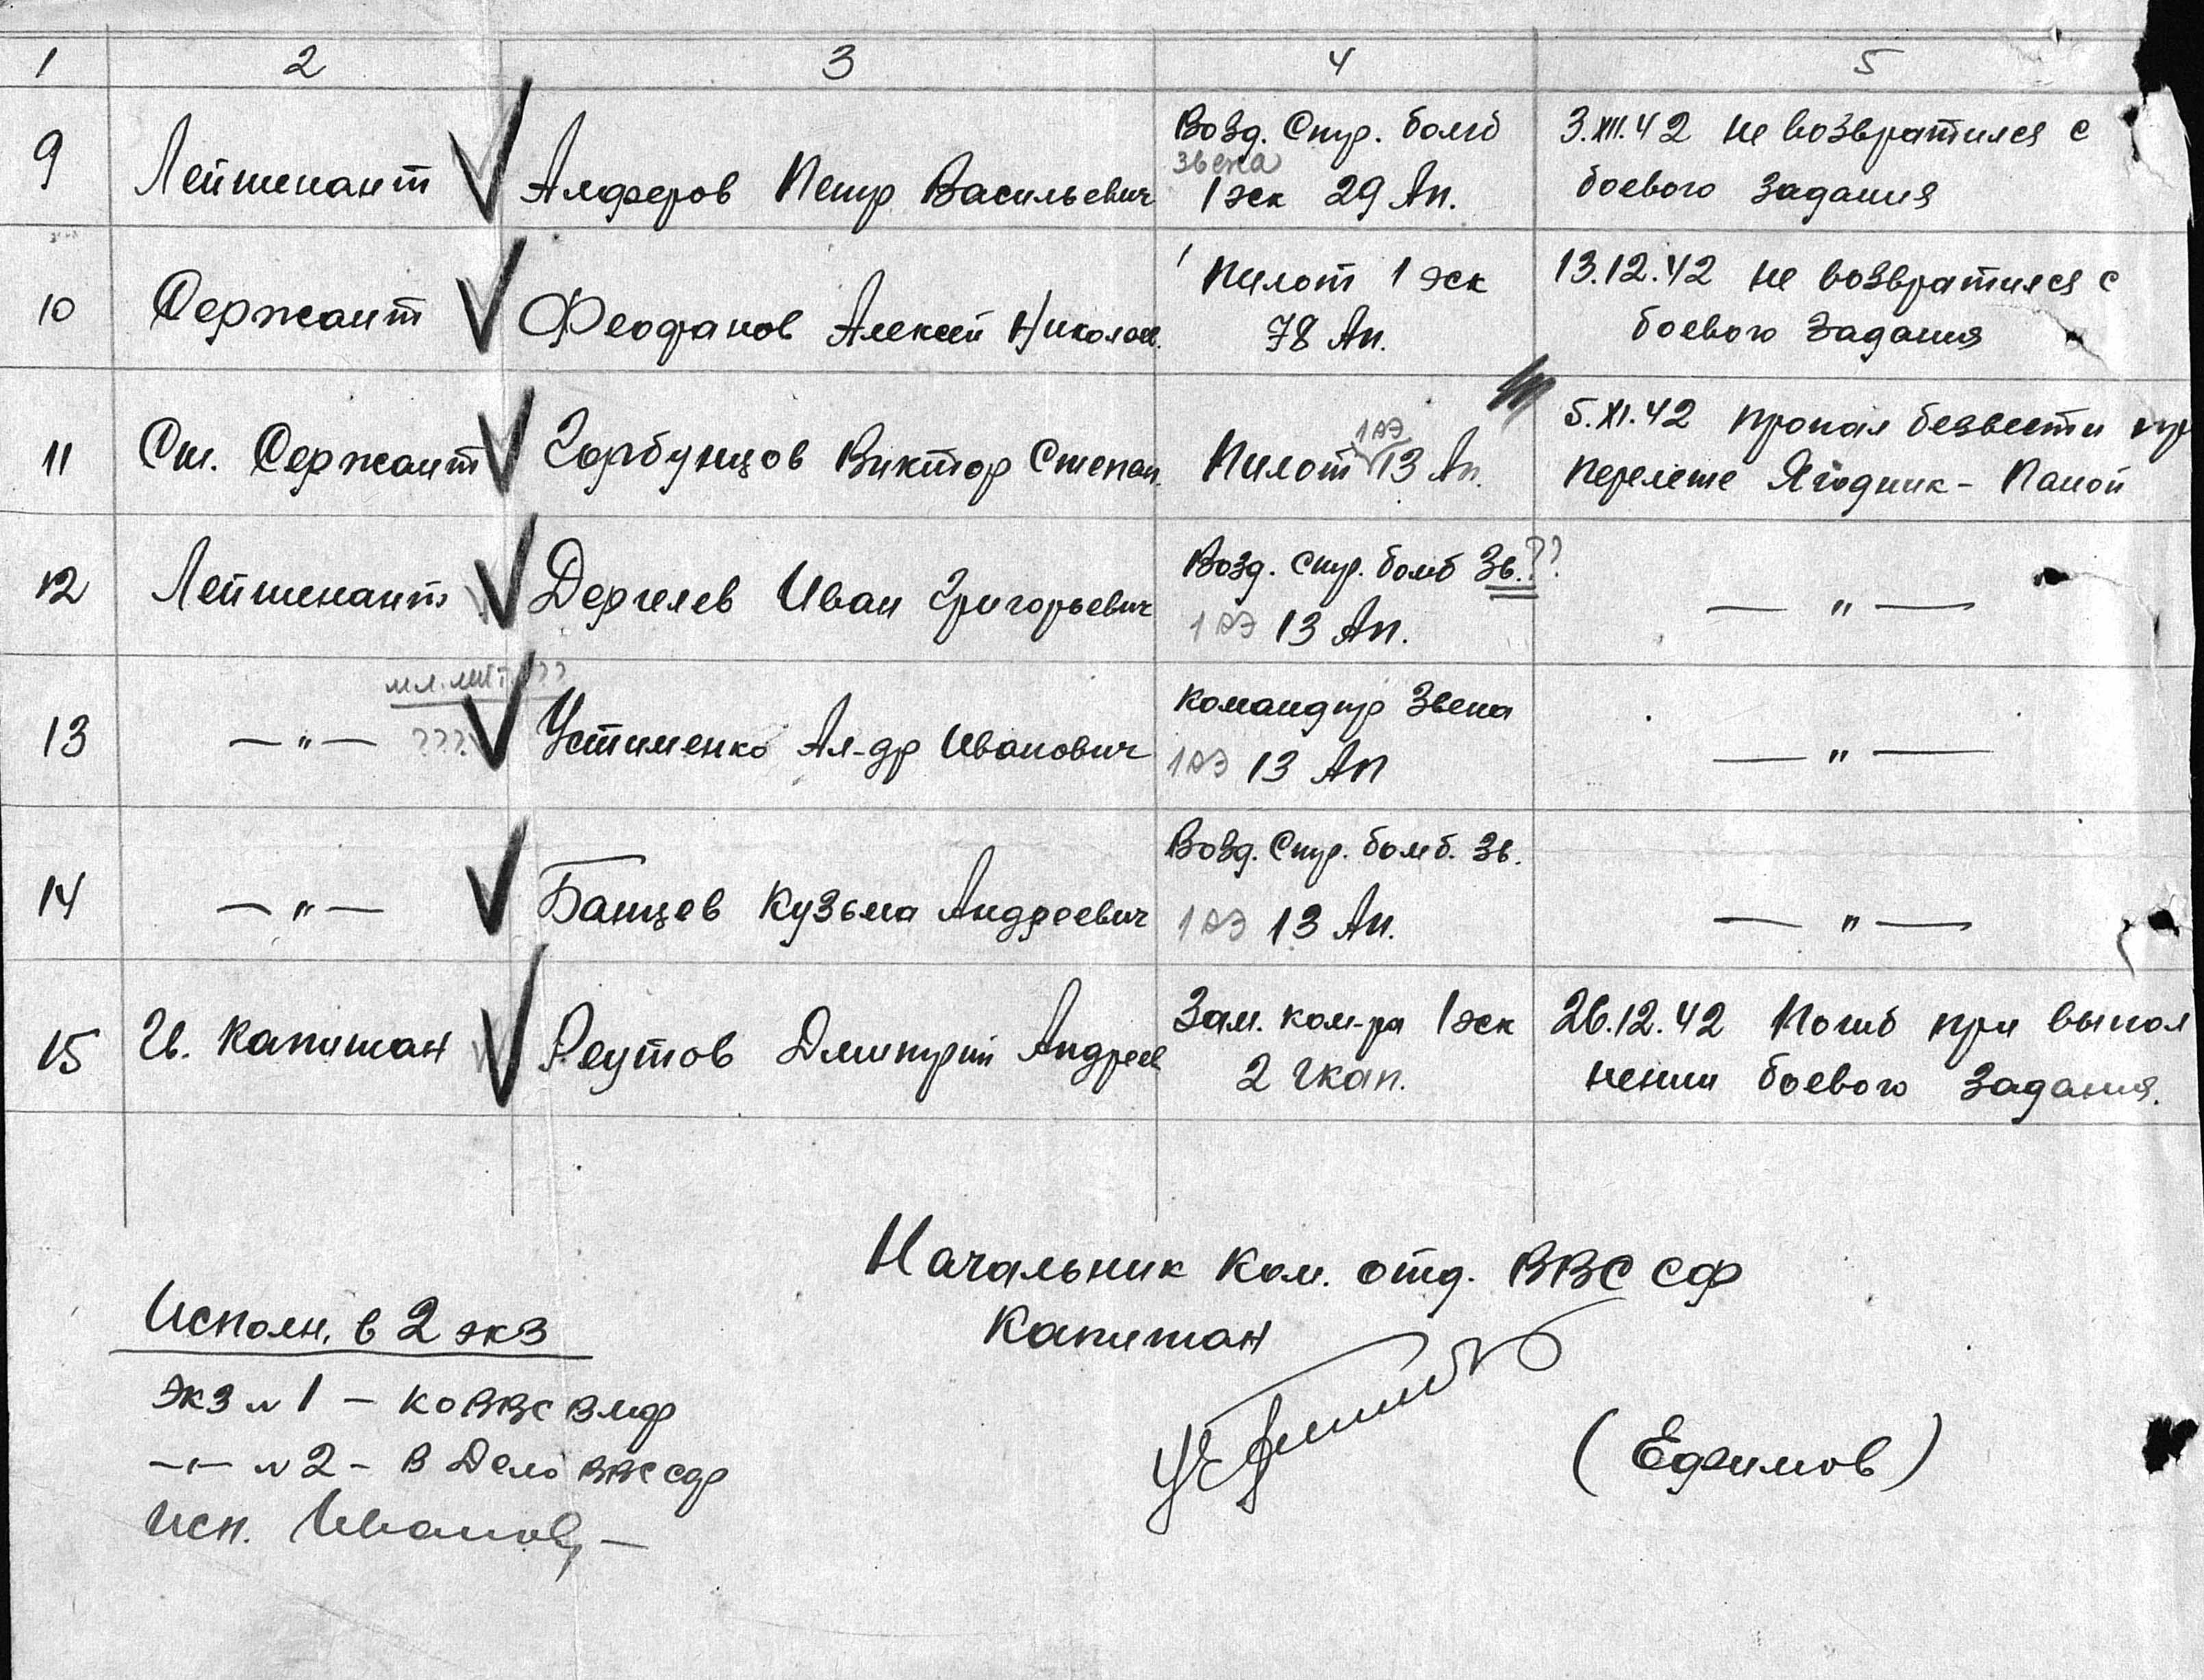 1 2 3 4 5
9 Лейтенант Алферов Петр Васильевич Возд. Стр. бомб звена 1 эск 29 Ап. 3.XII.42 не возвратился с
боевого задания
10 Сержант Феофанов Алексей Николаев. Пилот 1 эск 78 Ап. 13.12.42 не возвратился с
боевого задания
11 Ст. Сержант Горбунцов Виктор Степан. Пилот 1 АЭ 13 Ап. 5.XI.42 пропал безвести пр
перелете Ягодник - Паной
12 Лейтенант Дергилев Иван Григорьевич Возд. стр. бомб Зв. ??
1 АЭ 13 Ап. — " —
мл. лейт ???
13 — " — ??? Устименко Ал-др Иванович командир Звена
1 АЭ 13 АП — " —
14 — " — Банцев Кузьма Андреевич Возд. Стр. бомб. Зв.
1 АЭ 13 Ап. — " —
15 Гв. Капитан Реутов Дмитрий Андреев Зам. ком-ра 1 эск
2 гкап. 26.12.42 Погиб при выпол
нении боевого задания.
Начальник Ком. отд. ВВС СФ
Капитан
(Ефимов)
Исполн. в 2 экз
Экз № 1 - КО ВВС ВМФ
-"- № 2 - В Дело ВВС СФ
Исп. Иванов